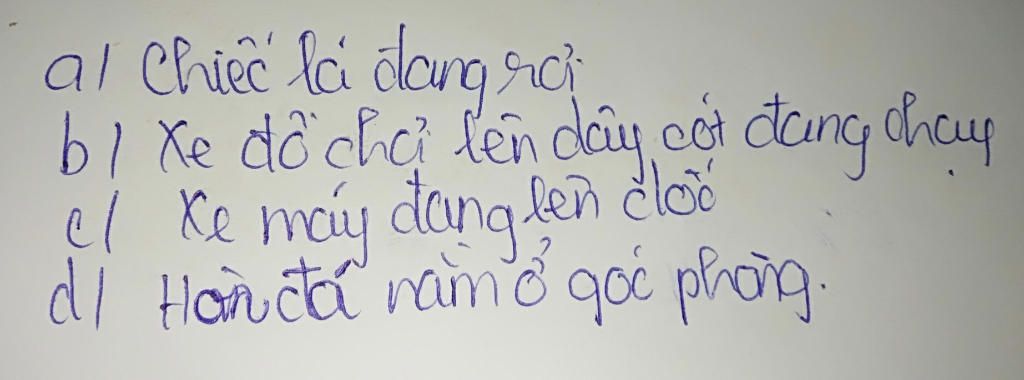 a/ Chiếc lá đang rơi
b/ Xe đồ chơi lên dây cót đang chạy
c/ Xe máy đang lên dốc
d/ Hòn đá nằm ở góc phòng.